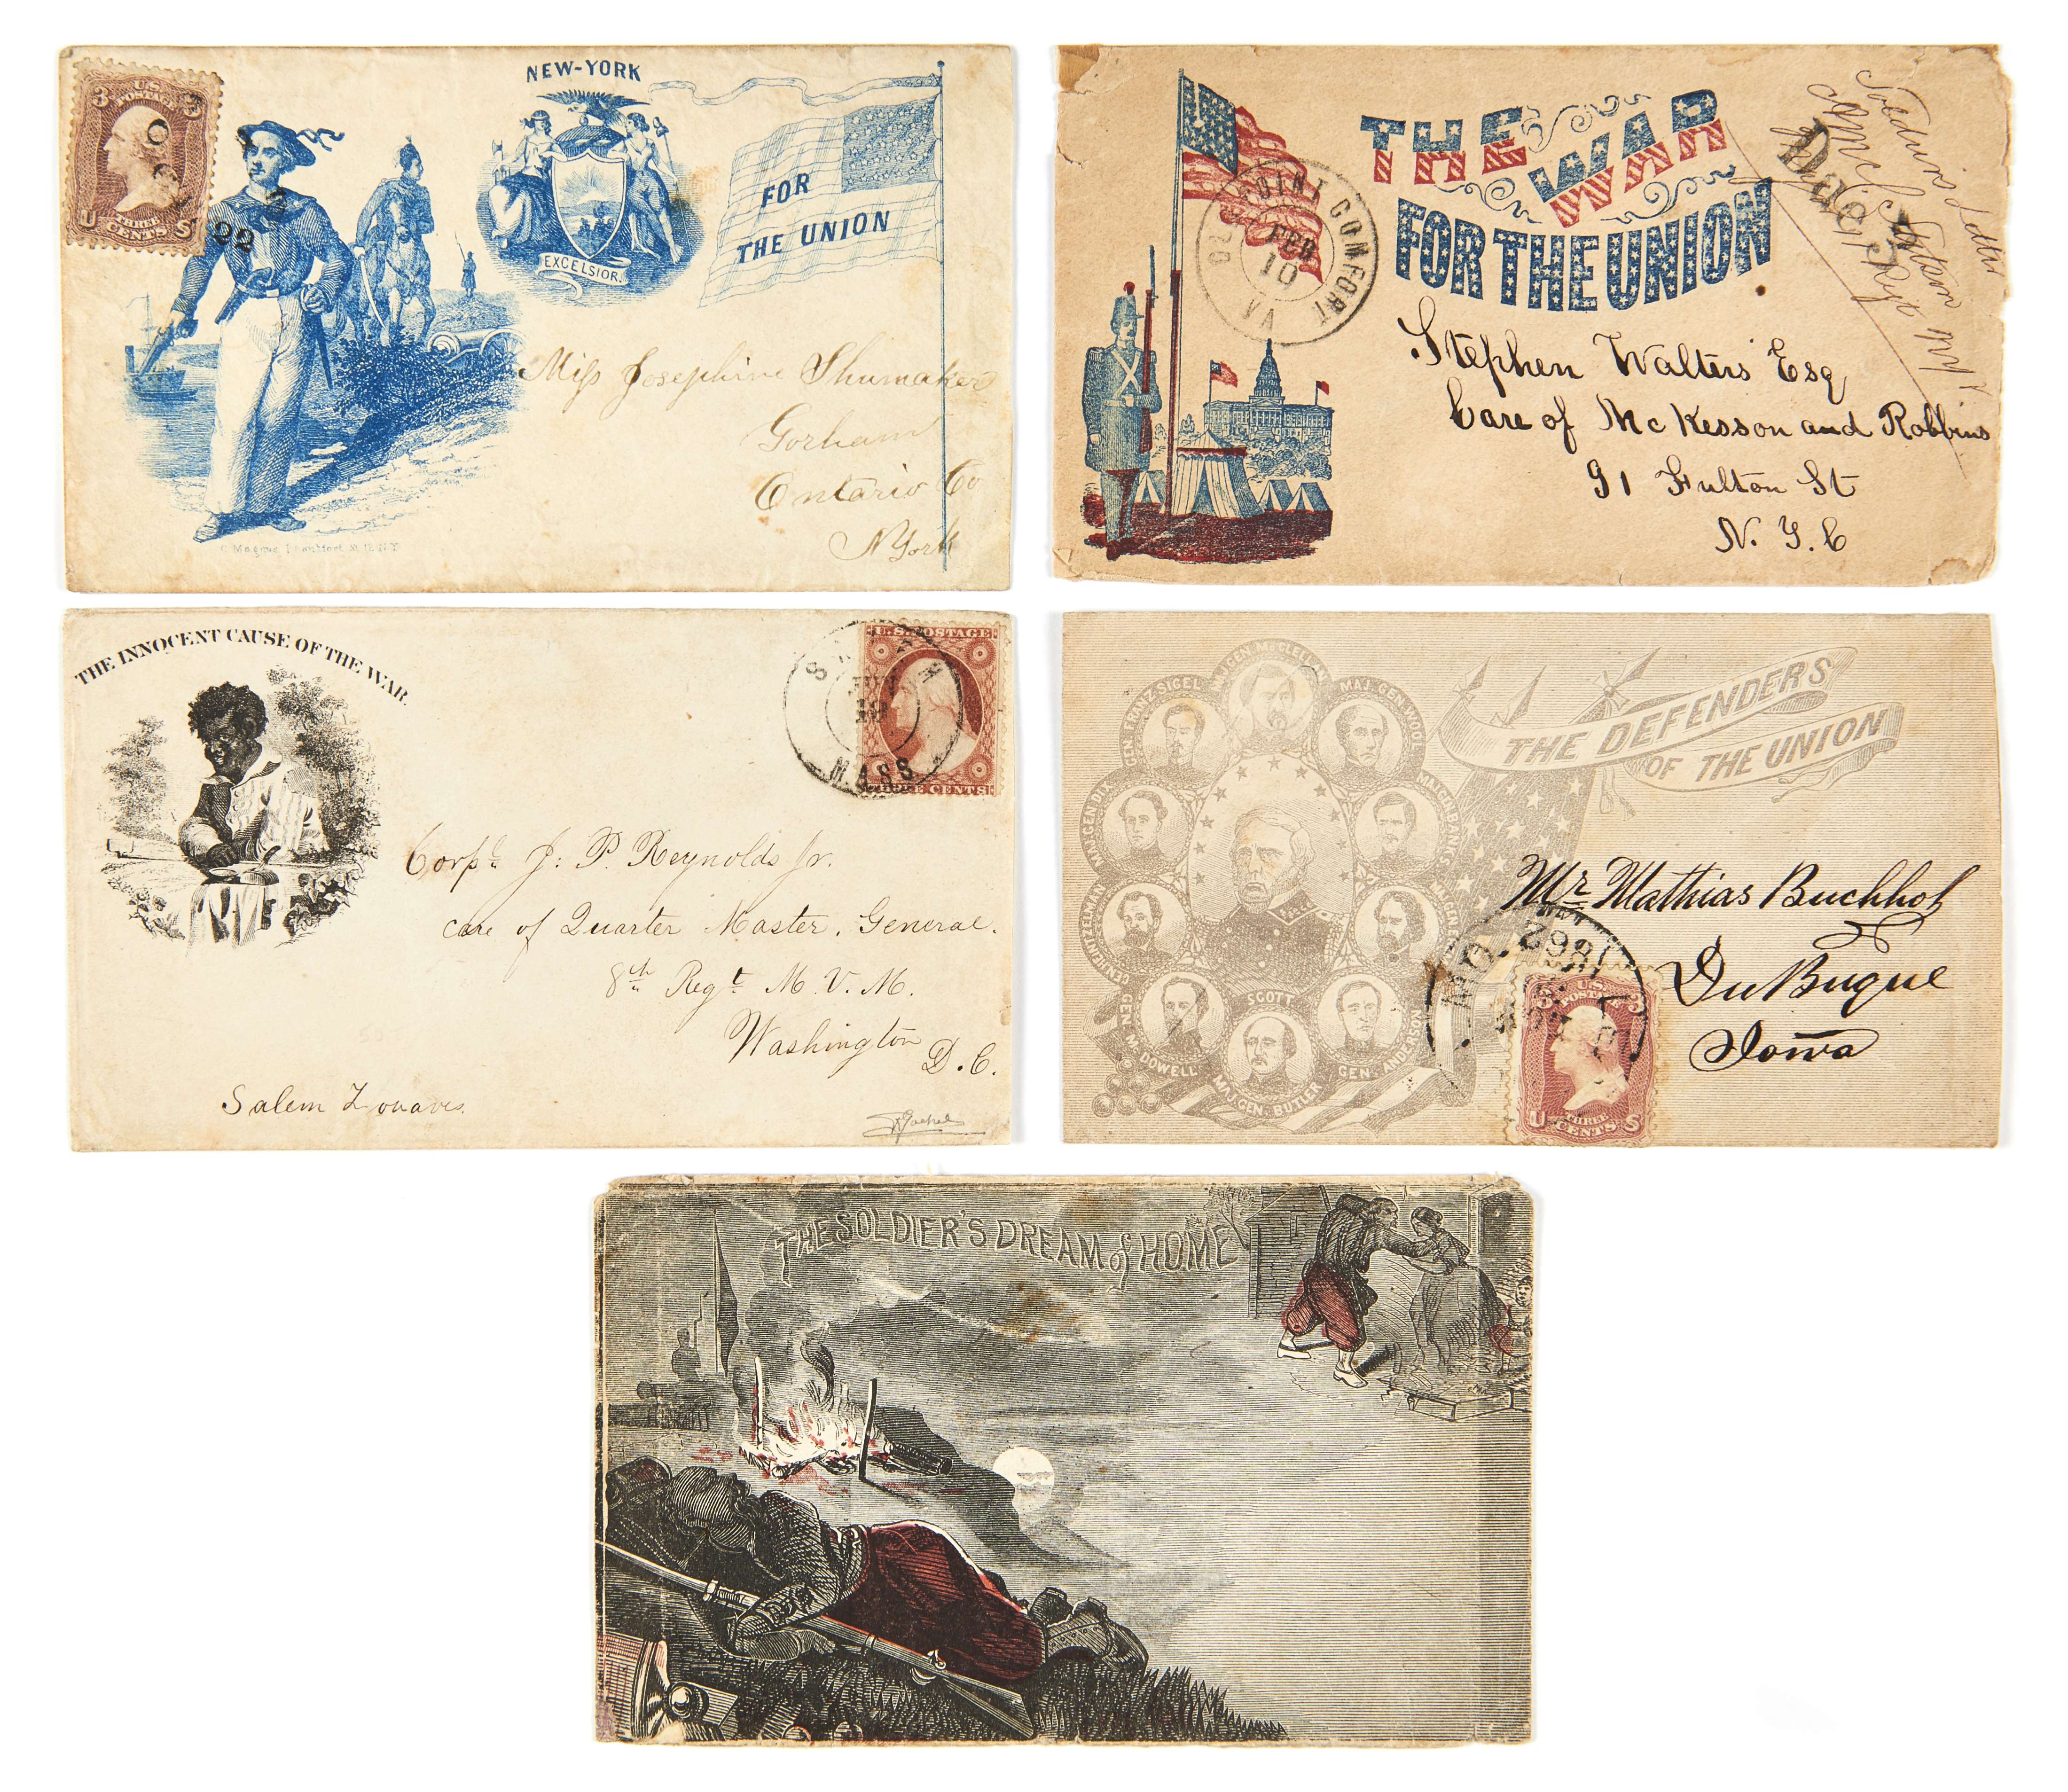 NEW-YORK
EXCELSIOR.
FOR
THE UNION
3 3
U.S.
POSTAGE
THREE
CENTS
U S
22
Miss Josephine Shumaker
Gorham
Ontario Co
N York
THE WAR
FOR THE UNION
OLD POINT COMFORT
FEB
10
VA
Due 3
Soldiers Letter
Stephen Walters Esq
Care of McKesson and Robbins
91 Fulton St
N.Y.C
THE INNOCENT CAUSE OF THE WAR.
U.S. POSTAGE
THREE CENTS
SALEM
MASS
Corpl. J. P. Reynolds Jr.
care of Quarter Master. General.
8th Regt. M. V. M.
Washington
D.C.
Salem Zouaves.
THE DEFENDERS
OF THE UNION
MAJ. GEN. McCLELLAN
MAJ. GEN. WOOL
GEN FRANZ SIGEL
MAJ. GEN. BANKS
MAJ. GEN DIX
HEINTZELMAN
GEN. McDOWELL
SCOTT
MAJ. GEN. BUTLER
GEN. ANDERSON
Mr. Mathias Buchhol
DuBuque
Iowa
MO.
1862
3 3
U.S.
POSTAGE
THREE
CENTS
U S
THE SOLDIER'S DREAM of HOME